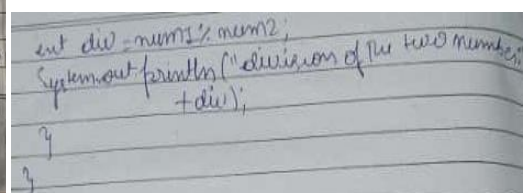 int div = num1 % num2;
System.out.println("division of the two number
+div);
}
}